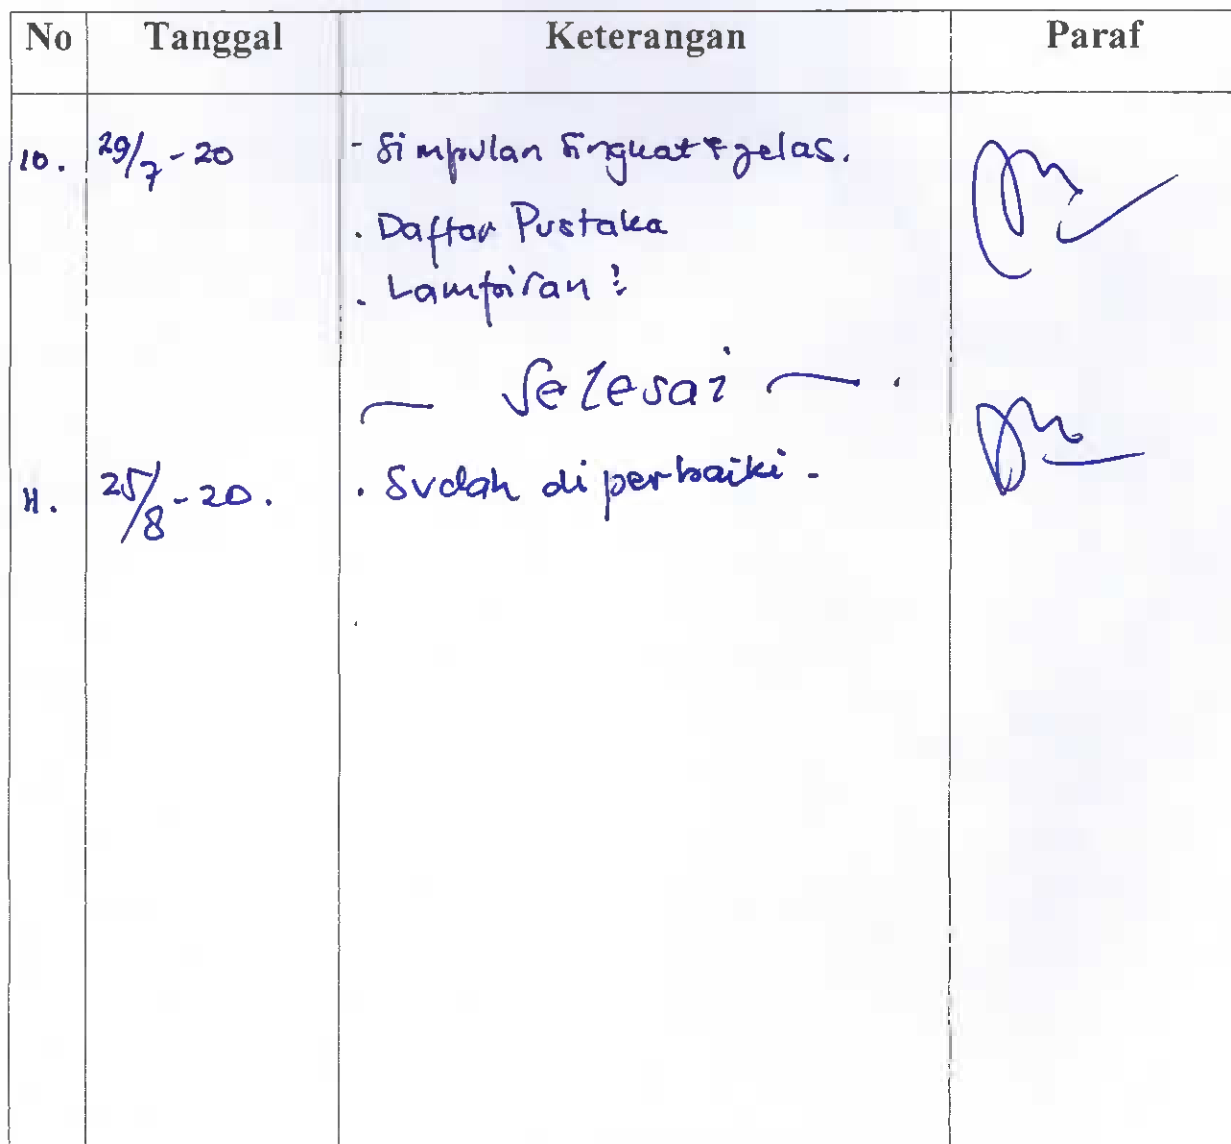 No Tanggal Keterangan Paraf
10. 29/7 - 20 - Simpulan Singkat & jelas.
. Daftar Pustaka
. Lampiran :
~ Selesai ~ .
11. 25/8 - 20. . Sudah di perbaiki -